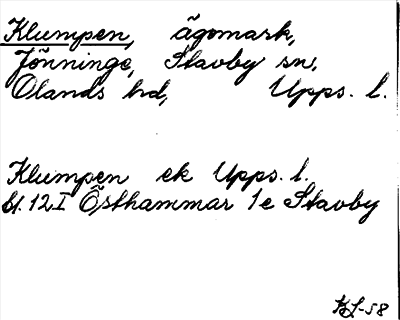 Klumpen, ägomark,
Jönninge, Stavby sn,
Olands hd, Upps. l.
Klumpen ek Upps. l.
bl. 12 I Östhammar 1e Stavby
KL-58